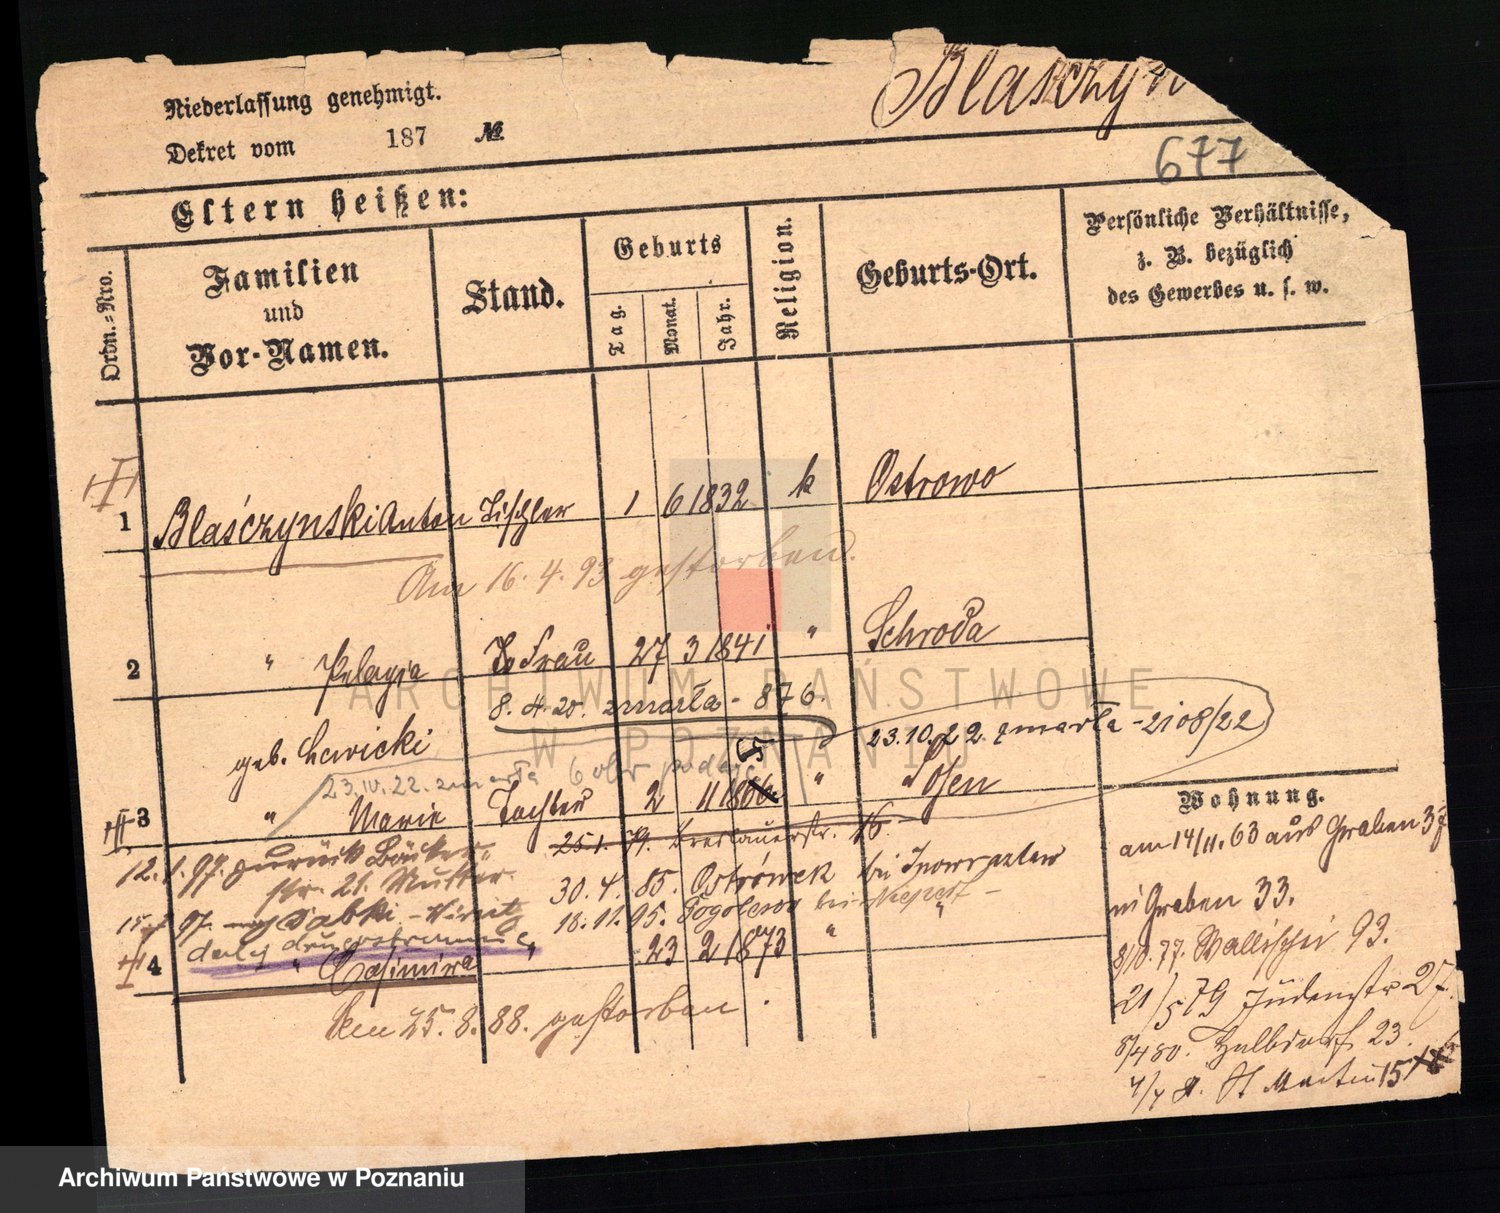 Niederlassung genehmigt.
Dekret vom 187 №
Blasczyn
677
Eltern heißen:
Ordn.-Nro.
Familien
und
Vor-Namen.
Stand.
Geburts
Tag.
Monat.
Jahr.
Religion.
Geburts-Ort.
Persönliche Verhältnisse,
z. B. bezüglich
des Gewerbes u. s. w.
1 Blaśczynski Anton Tischler 1 6 1832 k Ostrowo
Am 16. 4. 93 gestorben.
2 " Pelagja Frau 27 3 1841 " Schroda
8. 4. 20. zmarła - 876.
geb. Lewicki
23.10.22. zmarła - 2108/22
23.10.22. zmarła
3 " Marie Tochter 2 11 186 " Posen
Wohnung.
25.1.79. Breslauerstr. 16
12.1.97. zurück Bäcker-
str. 21. Mutter
30. 4. 85. Ostrówek bei Inowrazlaw
18.11.95. bei
15. 97.
dalej
4 " Casimira " 23 2 1873 "
Den 25. 8. 88. gestorben.
am 14/11. 63 aus Graben 37
in Graben 33.
8/10. 77. Wallischei 93.
21/5 79 Judenstr 27.
8/4 80. Halbdorf 23.
St Martin 15
ARCHIWUM PAŃSTWOWE
W POZNANIU
Archiwum Państwowe w Poznaniu